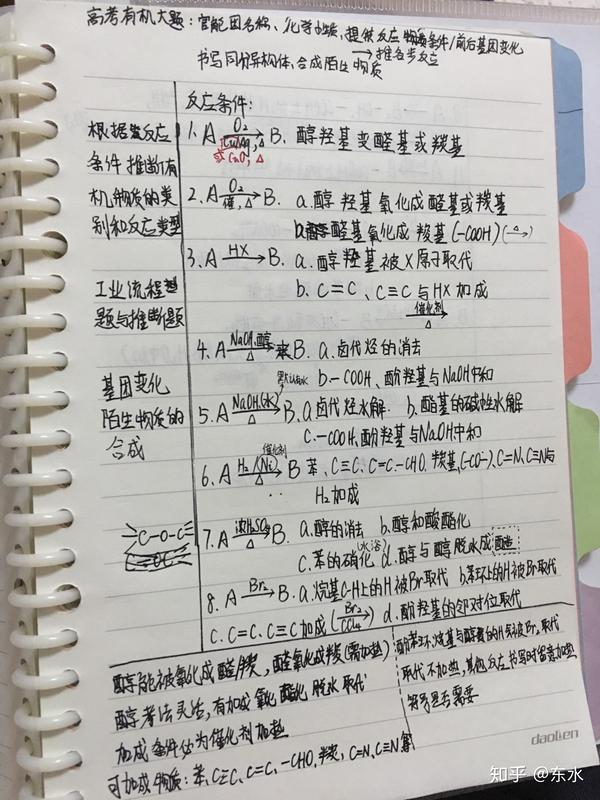 高考有机大题：官能团名称、化学性质，提供反应物质条件/前后基团变化
→推各步反应
书写同分异构体、合成陌生物质
根据反应
条件推断有
机物质的类
别和反应类型
工业流程
题与推断题
基团变化
陌生物质的
合成
C-O-C
反应条件：
1. A O₂ Cu/Ag，△ B. 醇羟基变醛基或羰基
或CuO，△
2. A O₂ 催，△ B. a.醇羟基氧化成醛基或羰基
b.醛基氧化成羧基(-COOH) (△→)
3. A HX △ B. a.醇羟基被X原子取代
b. C=C、C≡C与HX加成
催化剂 △
4. A NaOH，醇 △ B. a.卤代烃的消去
b.-COOH、酚羟基与NaOH中和
5. A NaOH(水) △ B. a.卤代烃水解. b.酯基的碱性水解
c.-COOH，酚羟基与NaOH中和
6. A H₂/(Ni) 催化剂 △ B 苯、C≡C、C=C、-CHO、羰基(-CO-)、C=N、C≡N与
H₂加成
7. A 浓H₂SO₄ △ B. a.醇的消去 b.醇和酸酯化
c.苯的硝化(水浴) d.醇与醇脱水成醚
8. A Br₂ B. a.烷基C-H上的H被Br取代 b.苯环上的H被Br取代
c. C=C、C≡C加成(Br₂ CCl₄) d.酚羟基的邻对位取代
醇能被氧化成醛/羰，醛氧化成羧(需加热)
醇考法灵活，有加成 氧化 酯化 脱水 取代
加成条件必为催化剂加热
可加成物质：苯、C≡C、C=C、-CHO、羰、C=N、C≡N等
取代不加热，其他反应书写时留意加热
符号是否需要
daolien
知乎 @东水